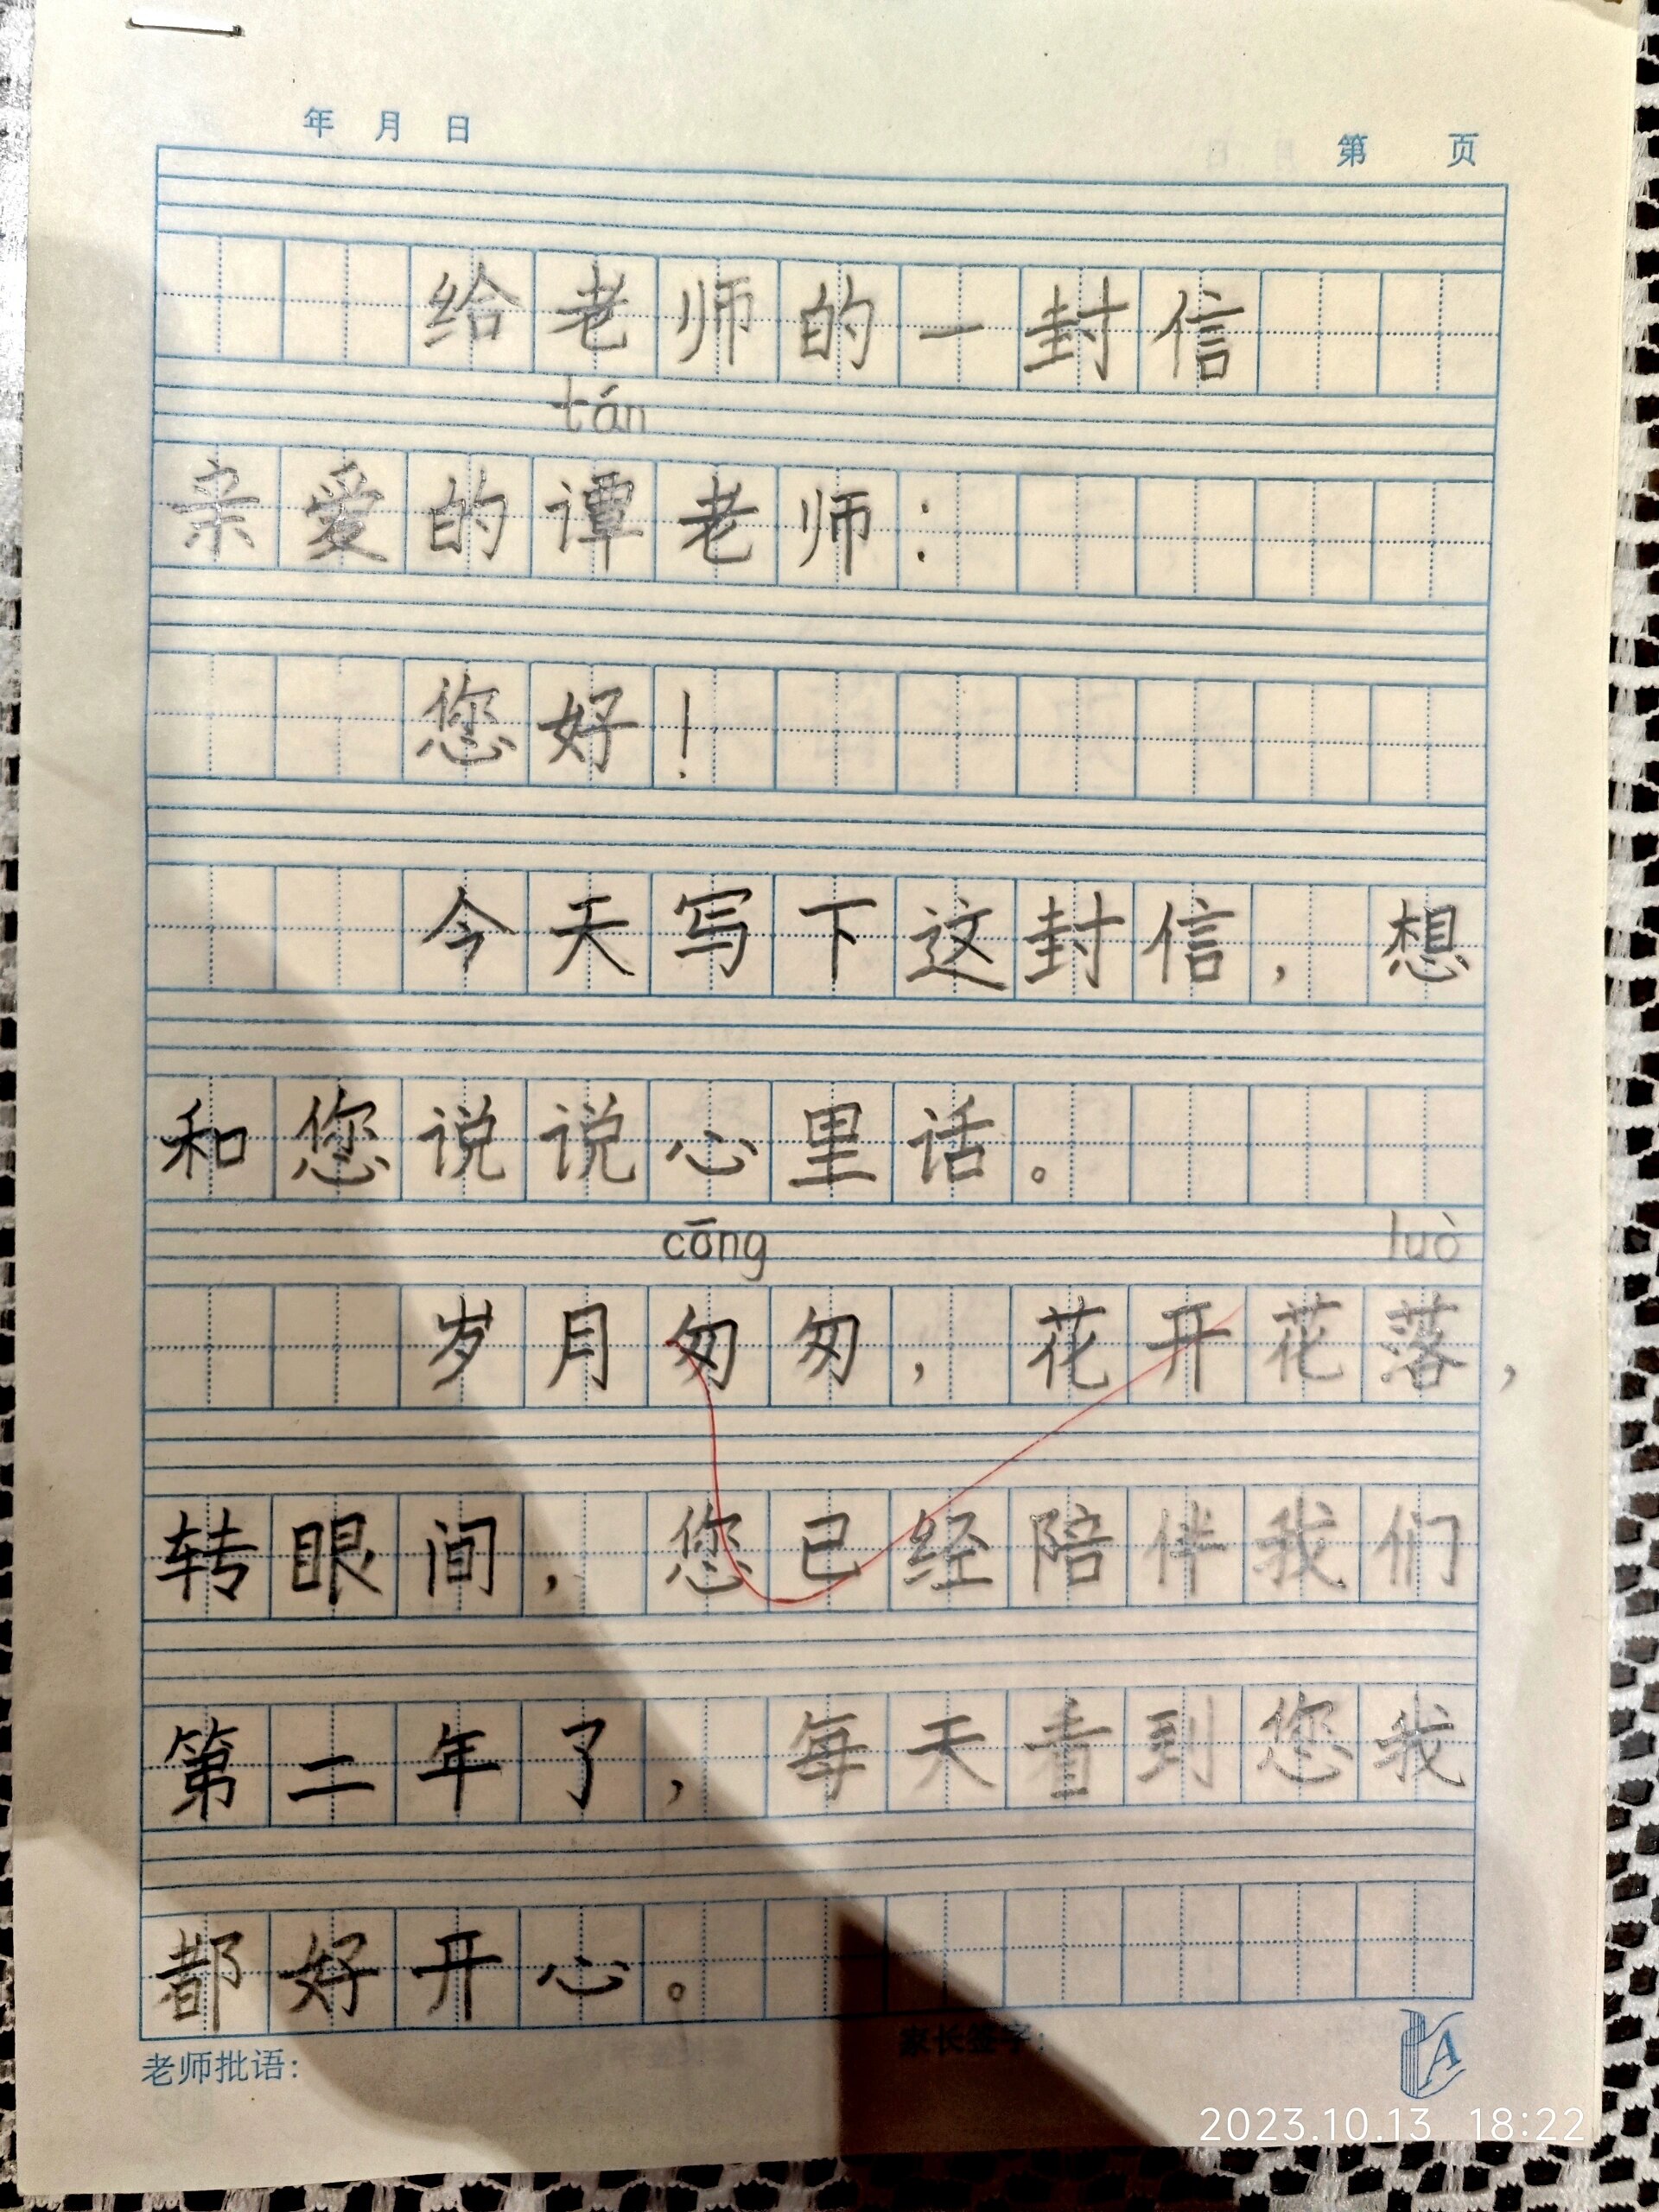 年 月 日 第 页
给老师的一封信
tán
亲爱的谭老师：
您好！
今天写下这封信，想
和您说说心里话。
cōng luò
岁月匆匆，花开花落，
转眼间，您已经陪伴我们
第二年了，每天看到您我
都好开心。
老师批语： 家长签字：
A
2023.10.13 18:22